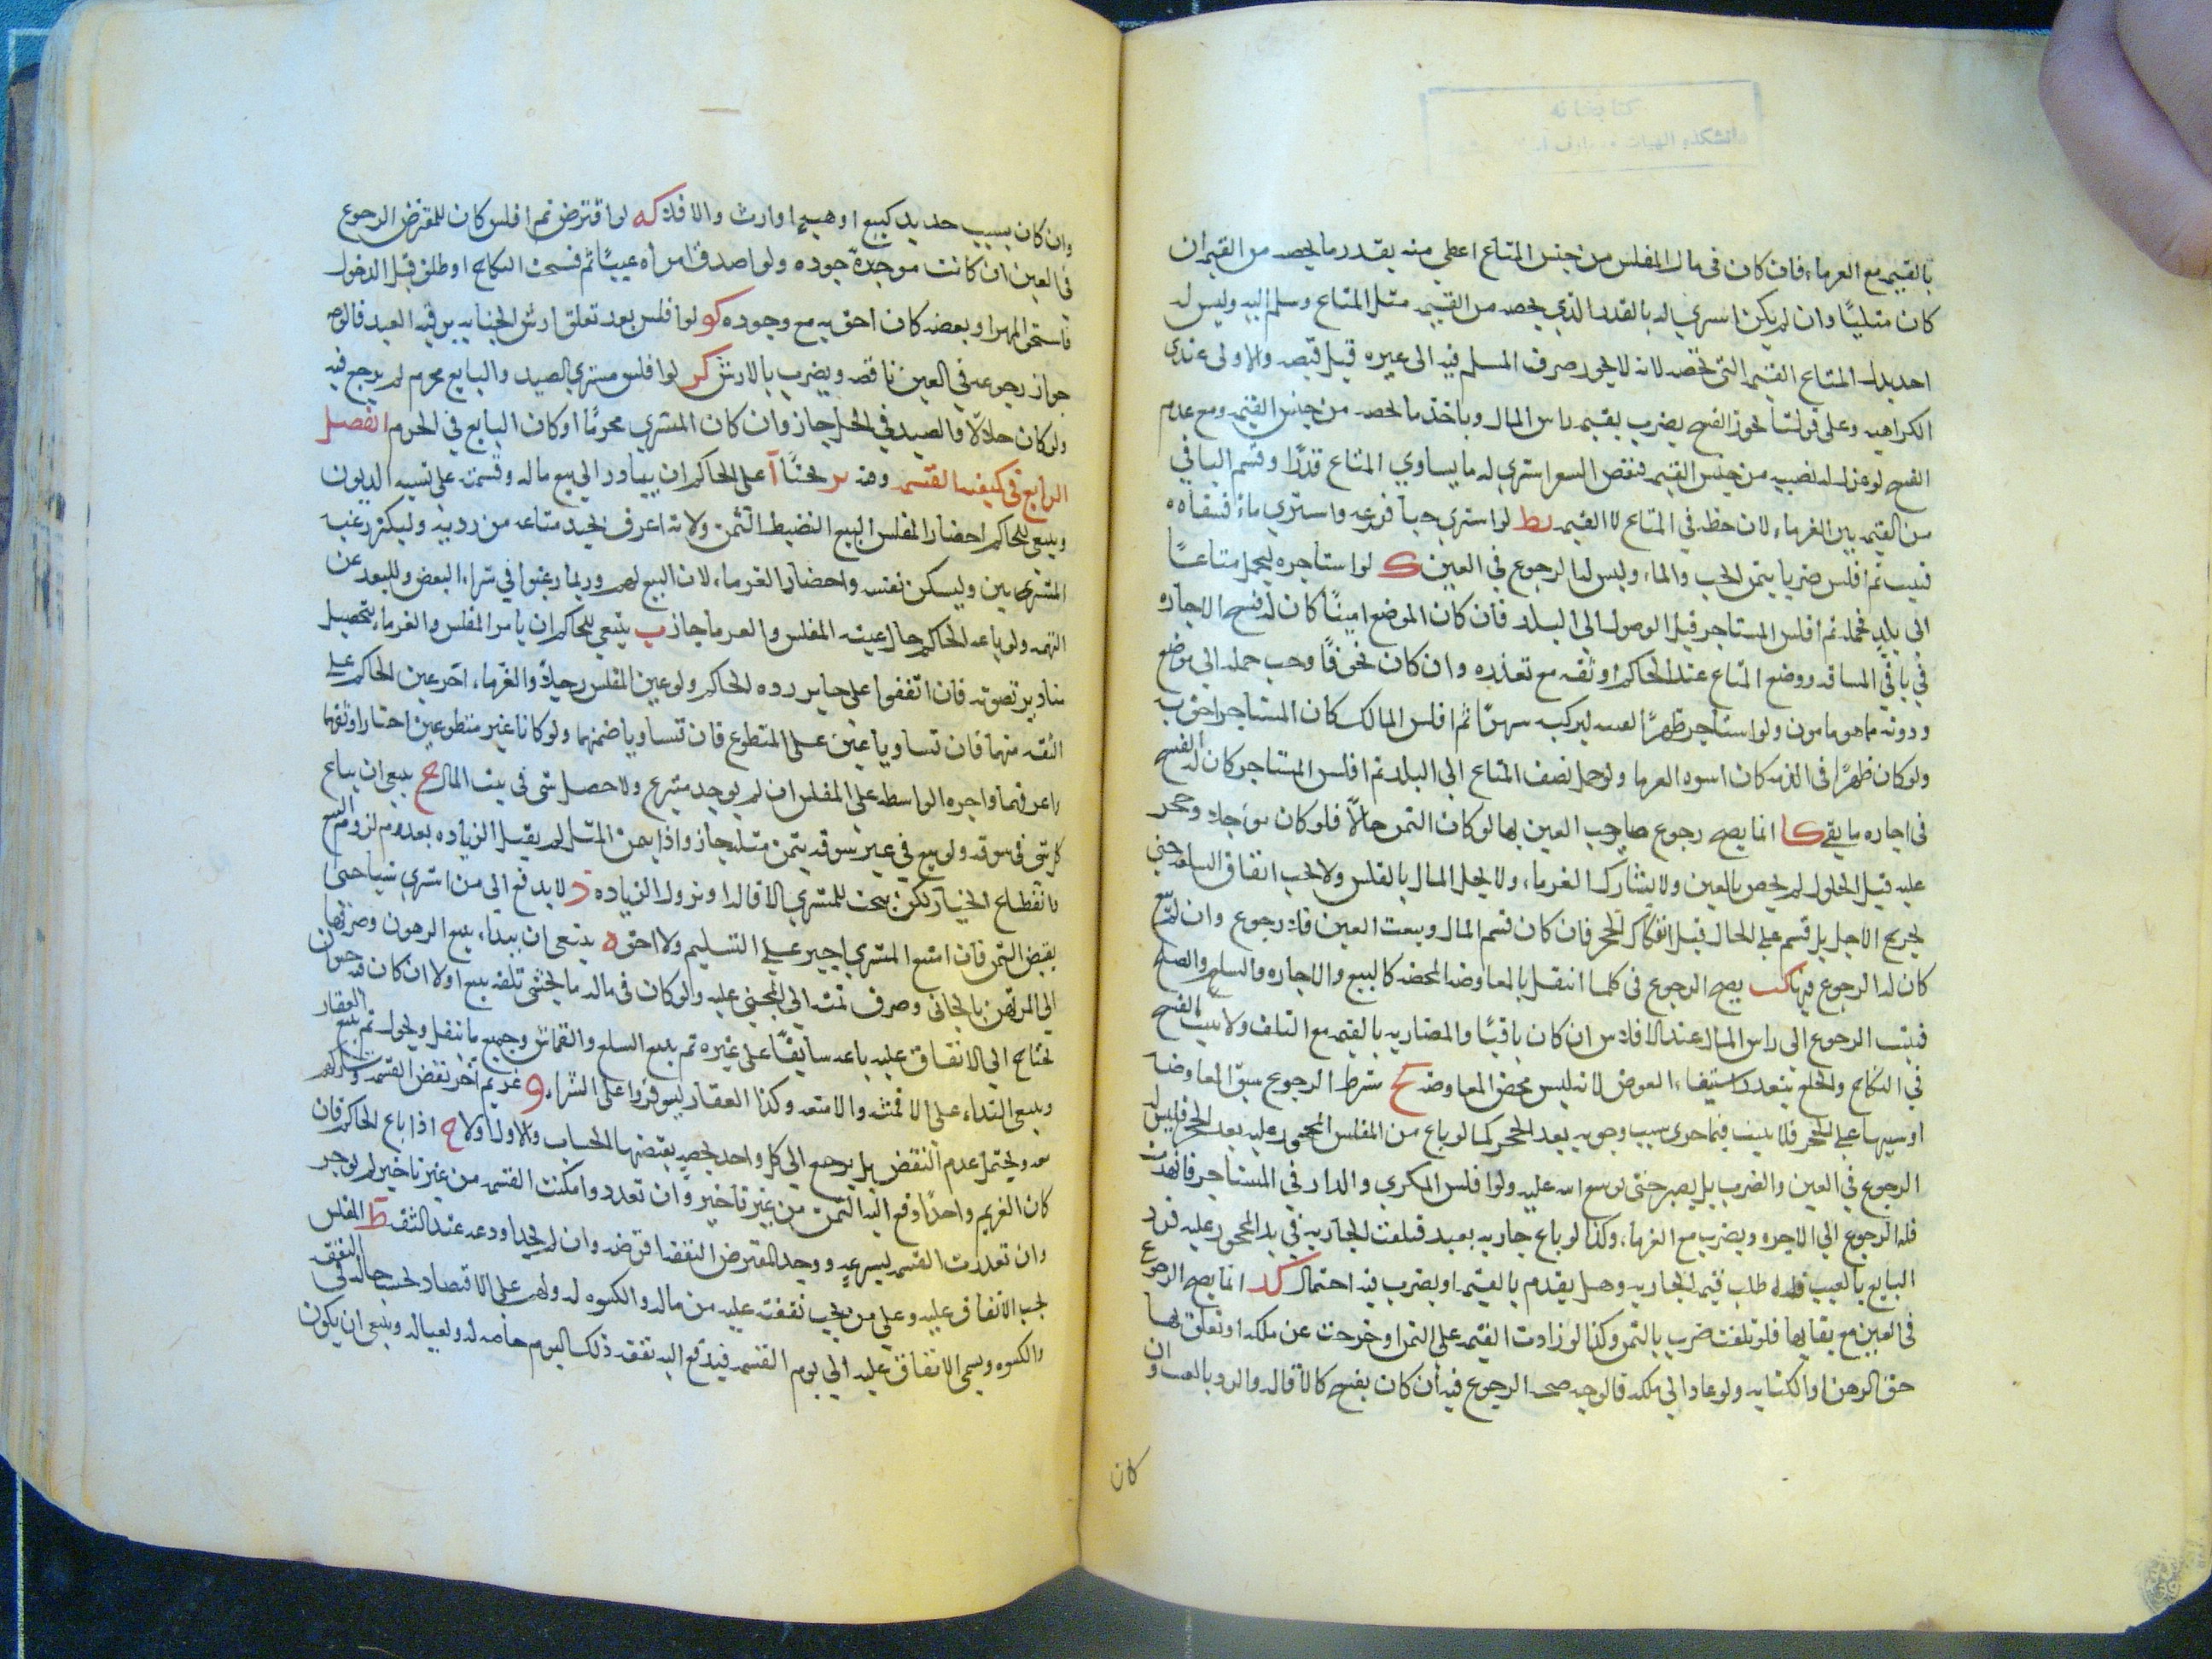 كتابخانه
دانشكده الهيات و معارف
بالقيمه مع الغرماء فان كان فى مال المفلس من جنس المتاع اعطى منه بقدر ما يخصه من القيمه ان
كان مثليًا وان لم يكن اشترى له بالقدر الذي يخصه من القيمه مثل المتاع وسلم اليه وليس له
اخذ بدل المتاع القيمه التى تخصه لانه لا يجوز صرف المسلم فيه الى غيره قبل قبضه والاولى عندى
الكراهيه وعلى قولنا بجواز الفسخ يضرب بقيمه راس المال وياخذ ما يخصه من جنس القيمه ومع عدم
الفسخ لو عزل له نصيبه من جنس القيمه فنقص السعر اشترى له ما يساوي المتاع قدرًا وقسم الباقي
من القيمه بين الغرماء لان حظه في المتاع لا القيمه لط لو اشترى حبا فزرعه واشتري ماء فسقاه
فنبت ثم افلس ضربا بثمن الحب والماء وليس لهما الرجوع في العين ك لو استاجره ليحمل متاعًا
الى بلدٍ فحمله ثم افلس المستاجر قبل الوصول الى البلد فان كان الموضع امينًا كان له فسخ الاجاره
في باقي المسافه ووضع المتاع عند الحاكم او ثقه مع تعذره وان كان مخوفًا وجب حمله الى موضع
ودونه مما هو مامون ولو استاجر ظهرًا بعينه ليركبه شهرًا ثم افلس المالك كان المستاجر احق به
ولو كان ظهرًا فى الذمه كان اسوه الغرما ولو حمل نصف المتاع الى البلد ثم افلس المستاجر كان له الفسخ
فى اجاره ما بقى كا انما يصح رجوع صاحب العين بها لو كان الثمن حالًا فلو كان مؤجلا وحجر
عليه قبل الحلول لم يختص بالعين ولا يشارك الغرماء ولا يحل المال بالفلس ولا يجب ايقاف السلعه حتى
يخرج الاجل بل قسم على الحال قبل انفكاك الحجر فان كان قسم المال وبيعت العين فلا رجوع وان لم تبع
كان له الرجوع فيها كب يصح الرجوع فى كلما انتقل بالمعاوضه المحضه كالبيع والاجاره والسلم والصلح
فيثبت الرجوع الى راس المال عند الافلاس ان كان باقيًا والمضاربه بالقيمه مع التلف ولا يثبت الفسخ
في النكاح والخلع بتعذر استيفاء العوض لانه ليس محض المعاوضه كج شرط الرجوع سبق المعاوضه
او سببها على الحجر فلا يثبت فيما جرى سبب وجوبه بعد الحجر كما لو باع من المفلس المحجور عليه بعد الحجر فليس له
الرجوع في العين والضرب بل يصبر حتى يوسع الله عليه ولو افلس المكري والدار في المستاجر فانهدمت
فله الرجوع الى الاجره ويضرب مع الغرماء وكذا لو باع جاريه بعبد فتلفت الجاريه في يد المحجور عليه فرد
البايع بالعيب فله طلب قيمه الجاريه وهل يقدم بالقيمه او يضرب فيه احتمال كد انما يصح الرجوع
فى العين مع بقايها فلو تلفت ضرب بالثمن وكذا لو زادت القيمه على الثمن او خرجت عن ملكه او تعلق بها
حق الرهن او الكتابه ولو عاد الى ملكه فالوجه صحه الرجوع فيه ان كان بفسخ كالاقاله والرد بالعيب وان
كان
وان كان بسبب جديد كبيع او هبه او ارث والا فلا كه لو اقترض ثم افلس كان للمقرض الرجوع
في العين ان كانت موجوده ولو اصدق امراه عينًا ثم فسخت النكاح او طلق قبل الدخول
فاستحق المهر او بعضه كان احق به مع وجوده كو لو افلس بعد تعلق ارش الجنايه برقبه العبد فالوجه
جواز رجوعه في العين ناقصه ويضرب بالارش كز لو افلس مشتري الصيد والبايع محرم لم يرجع فيه
ولو كان حلالًا والصيد في الحل جاز وان كان المشتري محرمًا او كان البايع في الحرم الفصل
الرابع في كيفيه القسمه وفيه ير بحثًا آ على الحاكم ان يبادر الى بيع ماله وقسمته على نسبه الديون
وينبغى للحاكم احضار المفلس البيع لتضبيط الثمن ولانه اعرف بجيد متاعه من رديه وليكثر رغبه
المشترى بين وليسكن نفسه واحضار الغرماء لان البيع لهم وربما رغبوا في شراء البعض وللبعد عن
التهمه ولو باعه الحاكم حال غيبه المفلس والغرما جاز ب ينبغي للحاكم ان يامر المفلس والغرماء بتحصيل
مناد يرتضونه فان اتفقوا على جاير رده الحاكم ولو عين المفلس رجلًا والغرماء اخر عين الحاكم على
الثقه منهما فان تساويا عين على المتطوع فان تساويا ضمنهما ولو كانا غير متطوعين اختار اوثقهما
واعرفهما واجره الواسطه على المفلس ان لم يوجد متبرع ولا حصل شى فى بيت المال ج ينبغى ان يباع
كل شى فى سوقه ولو بيع في غير سوقه بثمن مثله جاز واذا بثمن المثل لم يقبل الزياده بعد لزوم البيع
بانقطاع الخيار لكن يستحب للمشتري الاقاله او بذل الزياده د لا يدفع الى من اشترى شيا حتى
يقبض الثمن فان امتنع المشتري اجبر على التسليم ولا احق ه ينبغى ان يبداء ببيع الرهون وصرفها
الى المرتهن بالجانى وصرف ثمنه الى المجني عليه ولو كان فى ماله ما يخشى تلفه بيع اولا ان كان فيه حيوان
تحتاج الى الانفاق عليه باعه سابقًا على غيره ثم يبيع السلع والقماش وجميع ما ينقل ويحول ثم يبيع العقار
وينبغى النداء على الاقمشه والامتعه وكذا العقار ليتوفروا على الشراء و غريم اخر نقض القسمه وشاركهم
بعد ويحتمل عدم النقض بل يرجع الى كل واحد بحصه يقتضيها الحساب والاول اولا ح اذا باع الحاكم فان
كان الغريم واحدًا دفع اليه الثمن من غير تاخير وان تعدد وامكنت القسمه من غير تاخير لم يوخر
وان تعذرت القسمه لسرعهٍ ووجد المقترض الثقه اقرضه وان لم يجد اودعه عند الثقه ط المفلس
يجب الانفاق عليه وعلى من يجب نفقته عليه من ماله والكسوه له ولهم على الاقتصاد بحسب حاله فى النفقه
والكسوه ويسمى الانفاق عليه الى يوم القسمه فيدفع اليه نفقه ذلك اليوم خاصه له ولعياله وينبغى ان يكون